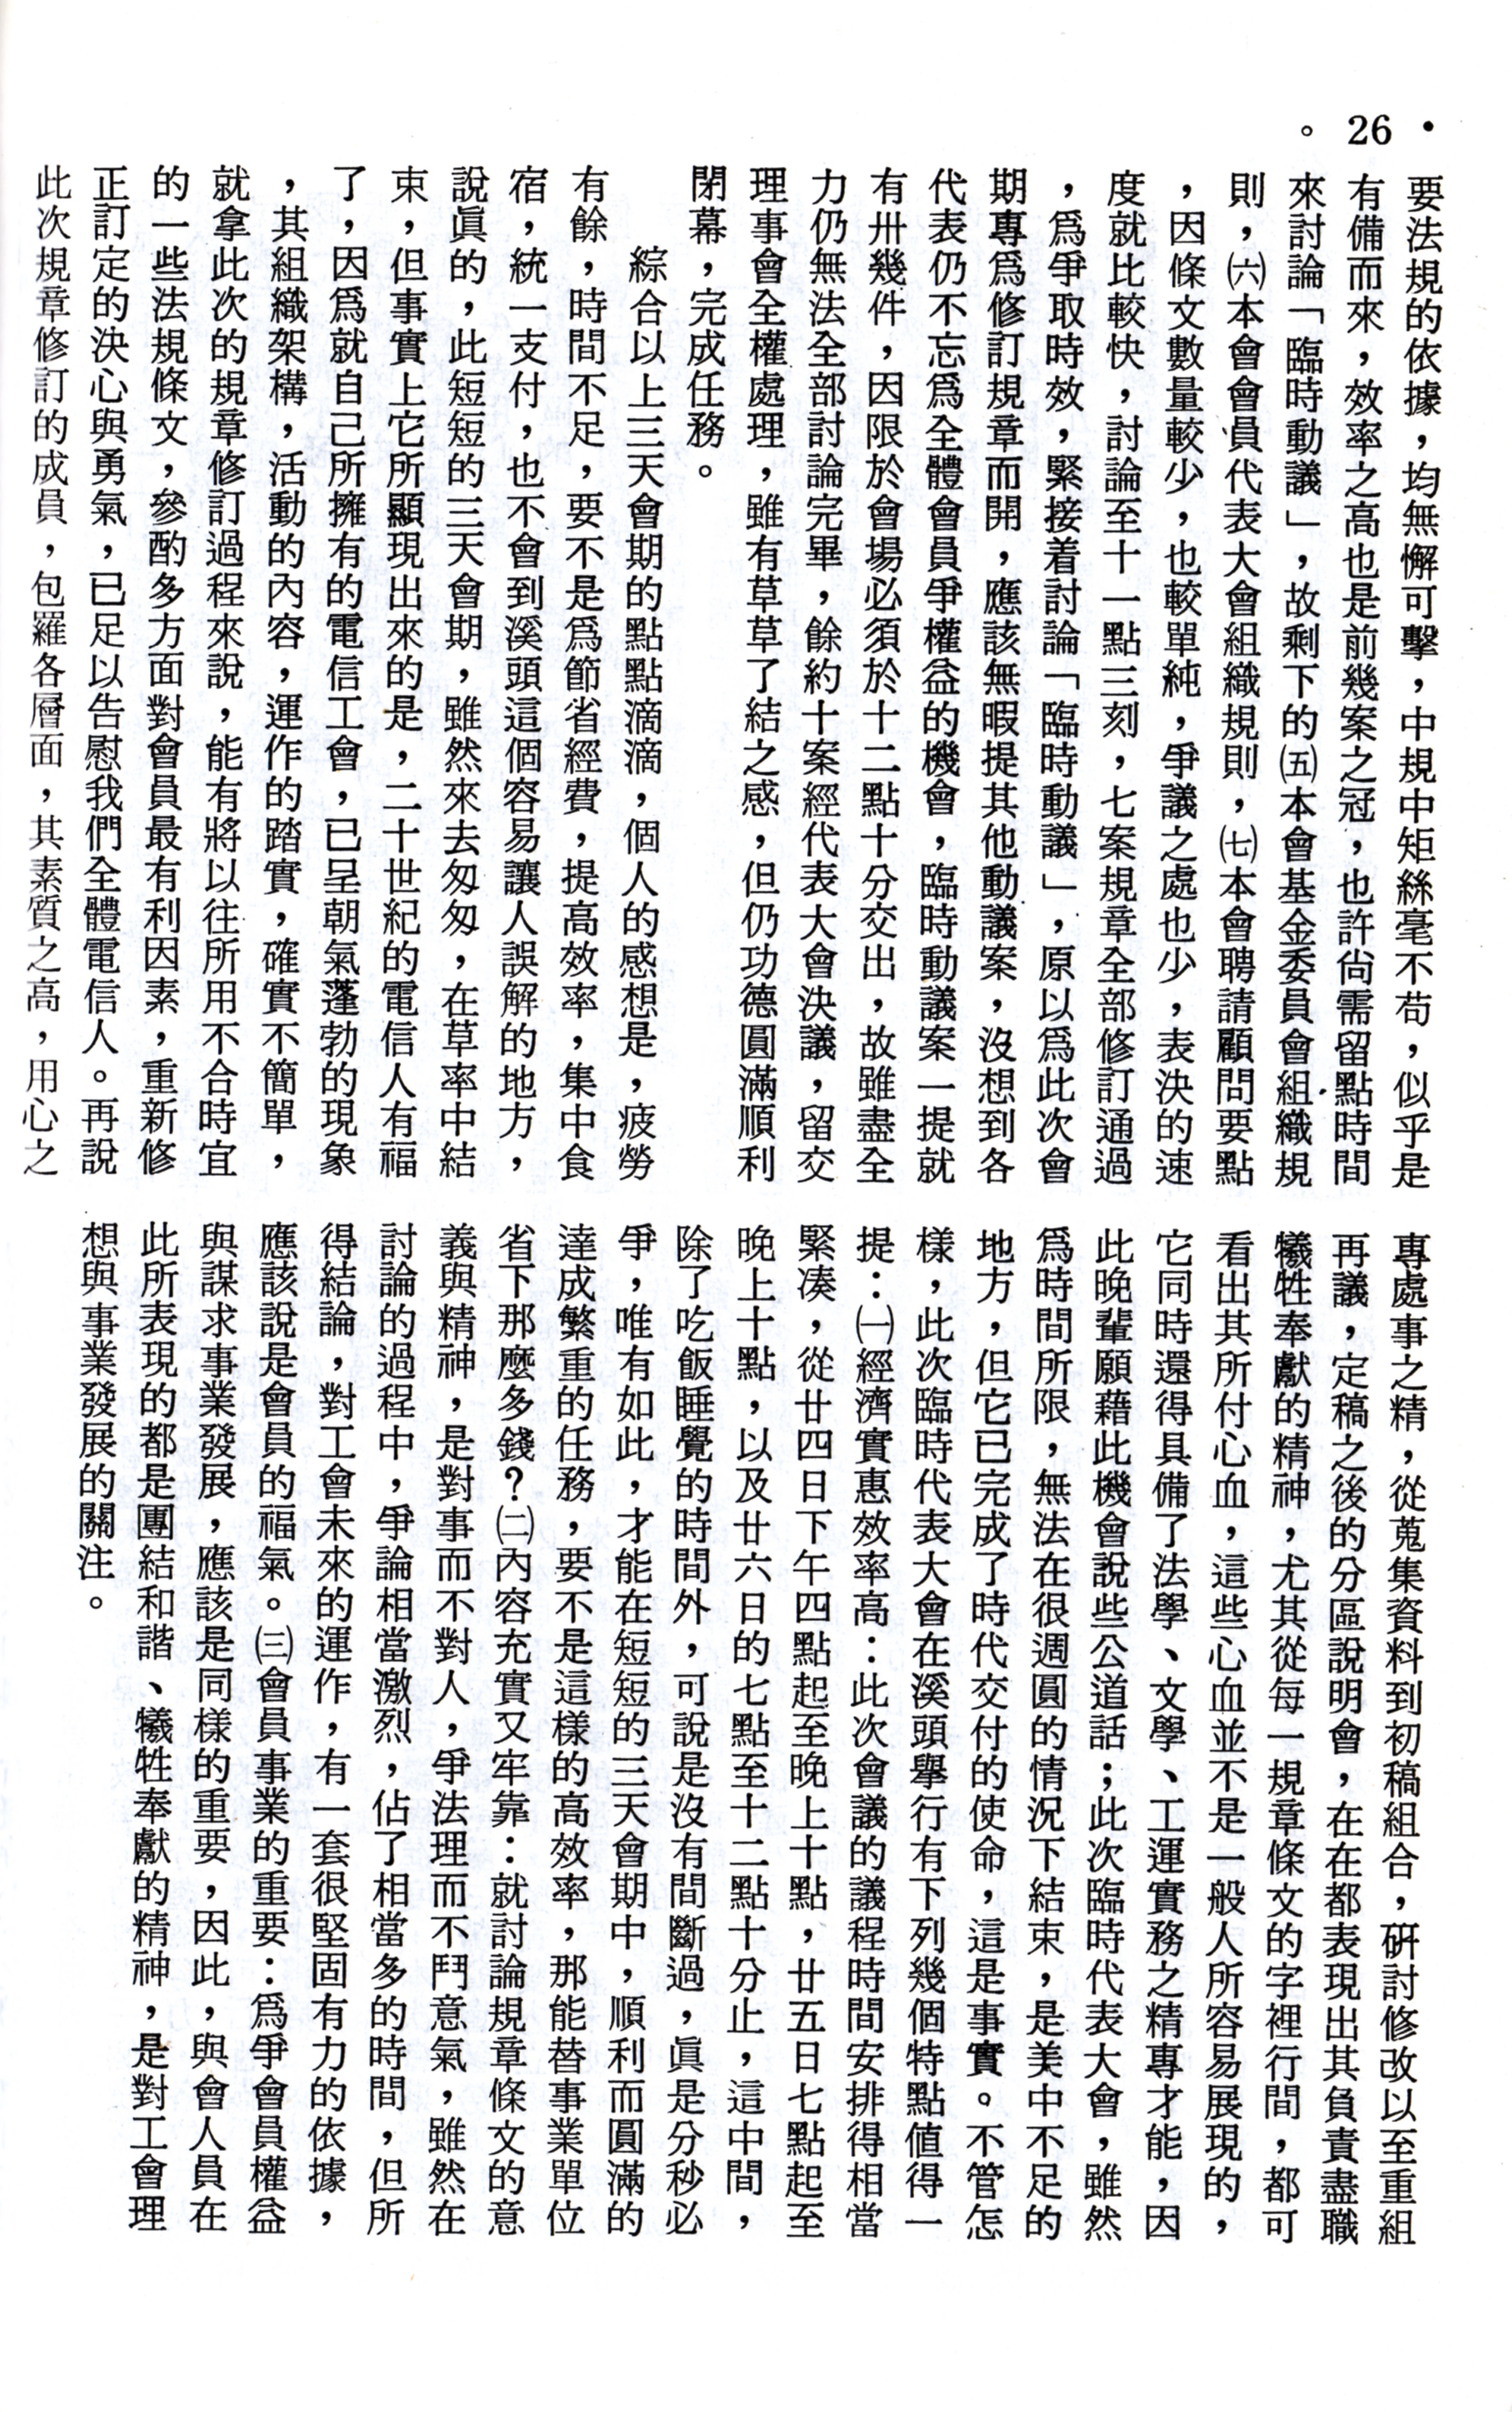 • 26 。
要法規的依據，均無懈可擊，中規中矩絲毫不苟，似乎是
有備而來，效率之高也是前幾案之冠，也許尙需留點時間
來討論「臨時動議」，故剩下的㈤本會基金委員會組織規
則，㈥本會會員代表大會組織規則，㈦本會聘請顧問要點
，因條文數量較少，也較單純，爭議之處也少，表決的速
度就比較快，討論至十一點三刻，七案規章全部修訂通過
，爲爭取時效，緊接着討論「臨時動議」，原以爲此次會
期專爲修訂規章而開，應該無暇提其他動議案，沒想到各
代表仍不忘爲全體會員爭權益的機會，臨時動議案一提就
有卅幾件，因限於會場必須於十二點十分交出，故雖盡全
力仍無法全部討論完畢，餘約十案經代表大會決議，留交
理事會全權處理，雖有草草了結之感，但仍功德圓滿順利
閉幕，完成任務。
綜合以上三天會期的點點滴滴，個人的感想是，疲勞
有餘，時間不足，要不是爲節省經費，提高效率，集中食
宿，統一支付，也不會到溪頭這個容易讓人誤解的地方，
說眞的，此短短的三天會期，雖然來去匆匆，在草率中結
束，但事實上它所顯現出來的是，二十世紀的電信人有福
了，因爲就自己所擁有的電信工會，已呈朝氣蓬勃的現象
，其組織架構，活動的內容，運作的踏實，確實不簡單，
就拿此次的規章修訂過程來說，能有將以往所用不合時宜
的一些法規條文，參酌多方面對會員最有利因素，重新修
正訂定的決心與勇氣，已足以告慰我們全體電信人。再說
此次規章修訂的成員，包羅各層面，其素質之高，用心之
專處事之精，從蒐集資料到初稿組合，硏討修改以至重組
再議，定稿之後的分區說明會，在在都表現出其負責盡職
犧牲奉獻的精神，尤其從每一規章條文的字裡行間，都可
看出其所付心血，這些心血並不是一般人所容易展現的，
它同時還得具備了法學、文學、工運實務之精專才能，因
此晚輩願藉此機會說些公道話；此次臨時代表大會，雖然
爲時間所限，無法在很週圓的情況下結束，是美中不足的
地方，但它已完成了時代交付的使命，這是事實。不管怎
樣，此次臨時代表大會在溪頭舉行有下列幾個特點値得一
提：㈠經濟實惠效率高：此次會議的議程時間安排得相當
緊凑，從廿四日下午四點起至晚上十點，廿五日七點起至
晚上十點，以及廿六日的七點至十二點十分止，這中間，
除了吃飯睡覺的時間外，可說是沒有間斷過，眞是分秒必
爭，唯有如此，才能在短短的三天會期中，順利而圓滿的
達成繁重的任務，要不是這樣的高效率，那能替事業單位
省下那麼多錢？㈡內容充實又牢靠：就討論規章條文的意
義與精神，是對事而不對人，爭法理而不鬥意氣，雖然在
討論的過程中，爭論相當激烈，佔了相當多的時間，但所
得結論，對工會未來的運作，有一套很堅固有力的依據，
應該說是會員的福氣。㈢會員事業的重要：爲爭會員權益
與謀求事業發展，應該是同樣的重要，因此，與會人員在
此所表現的都是團結和諧、犧牲奉獻的精神，是對工會理
想與事業發展的關注。